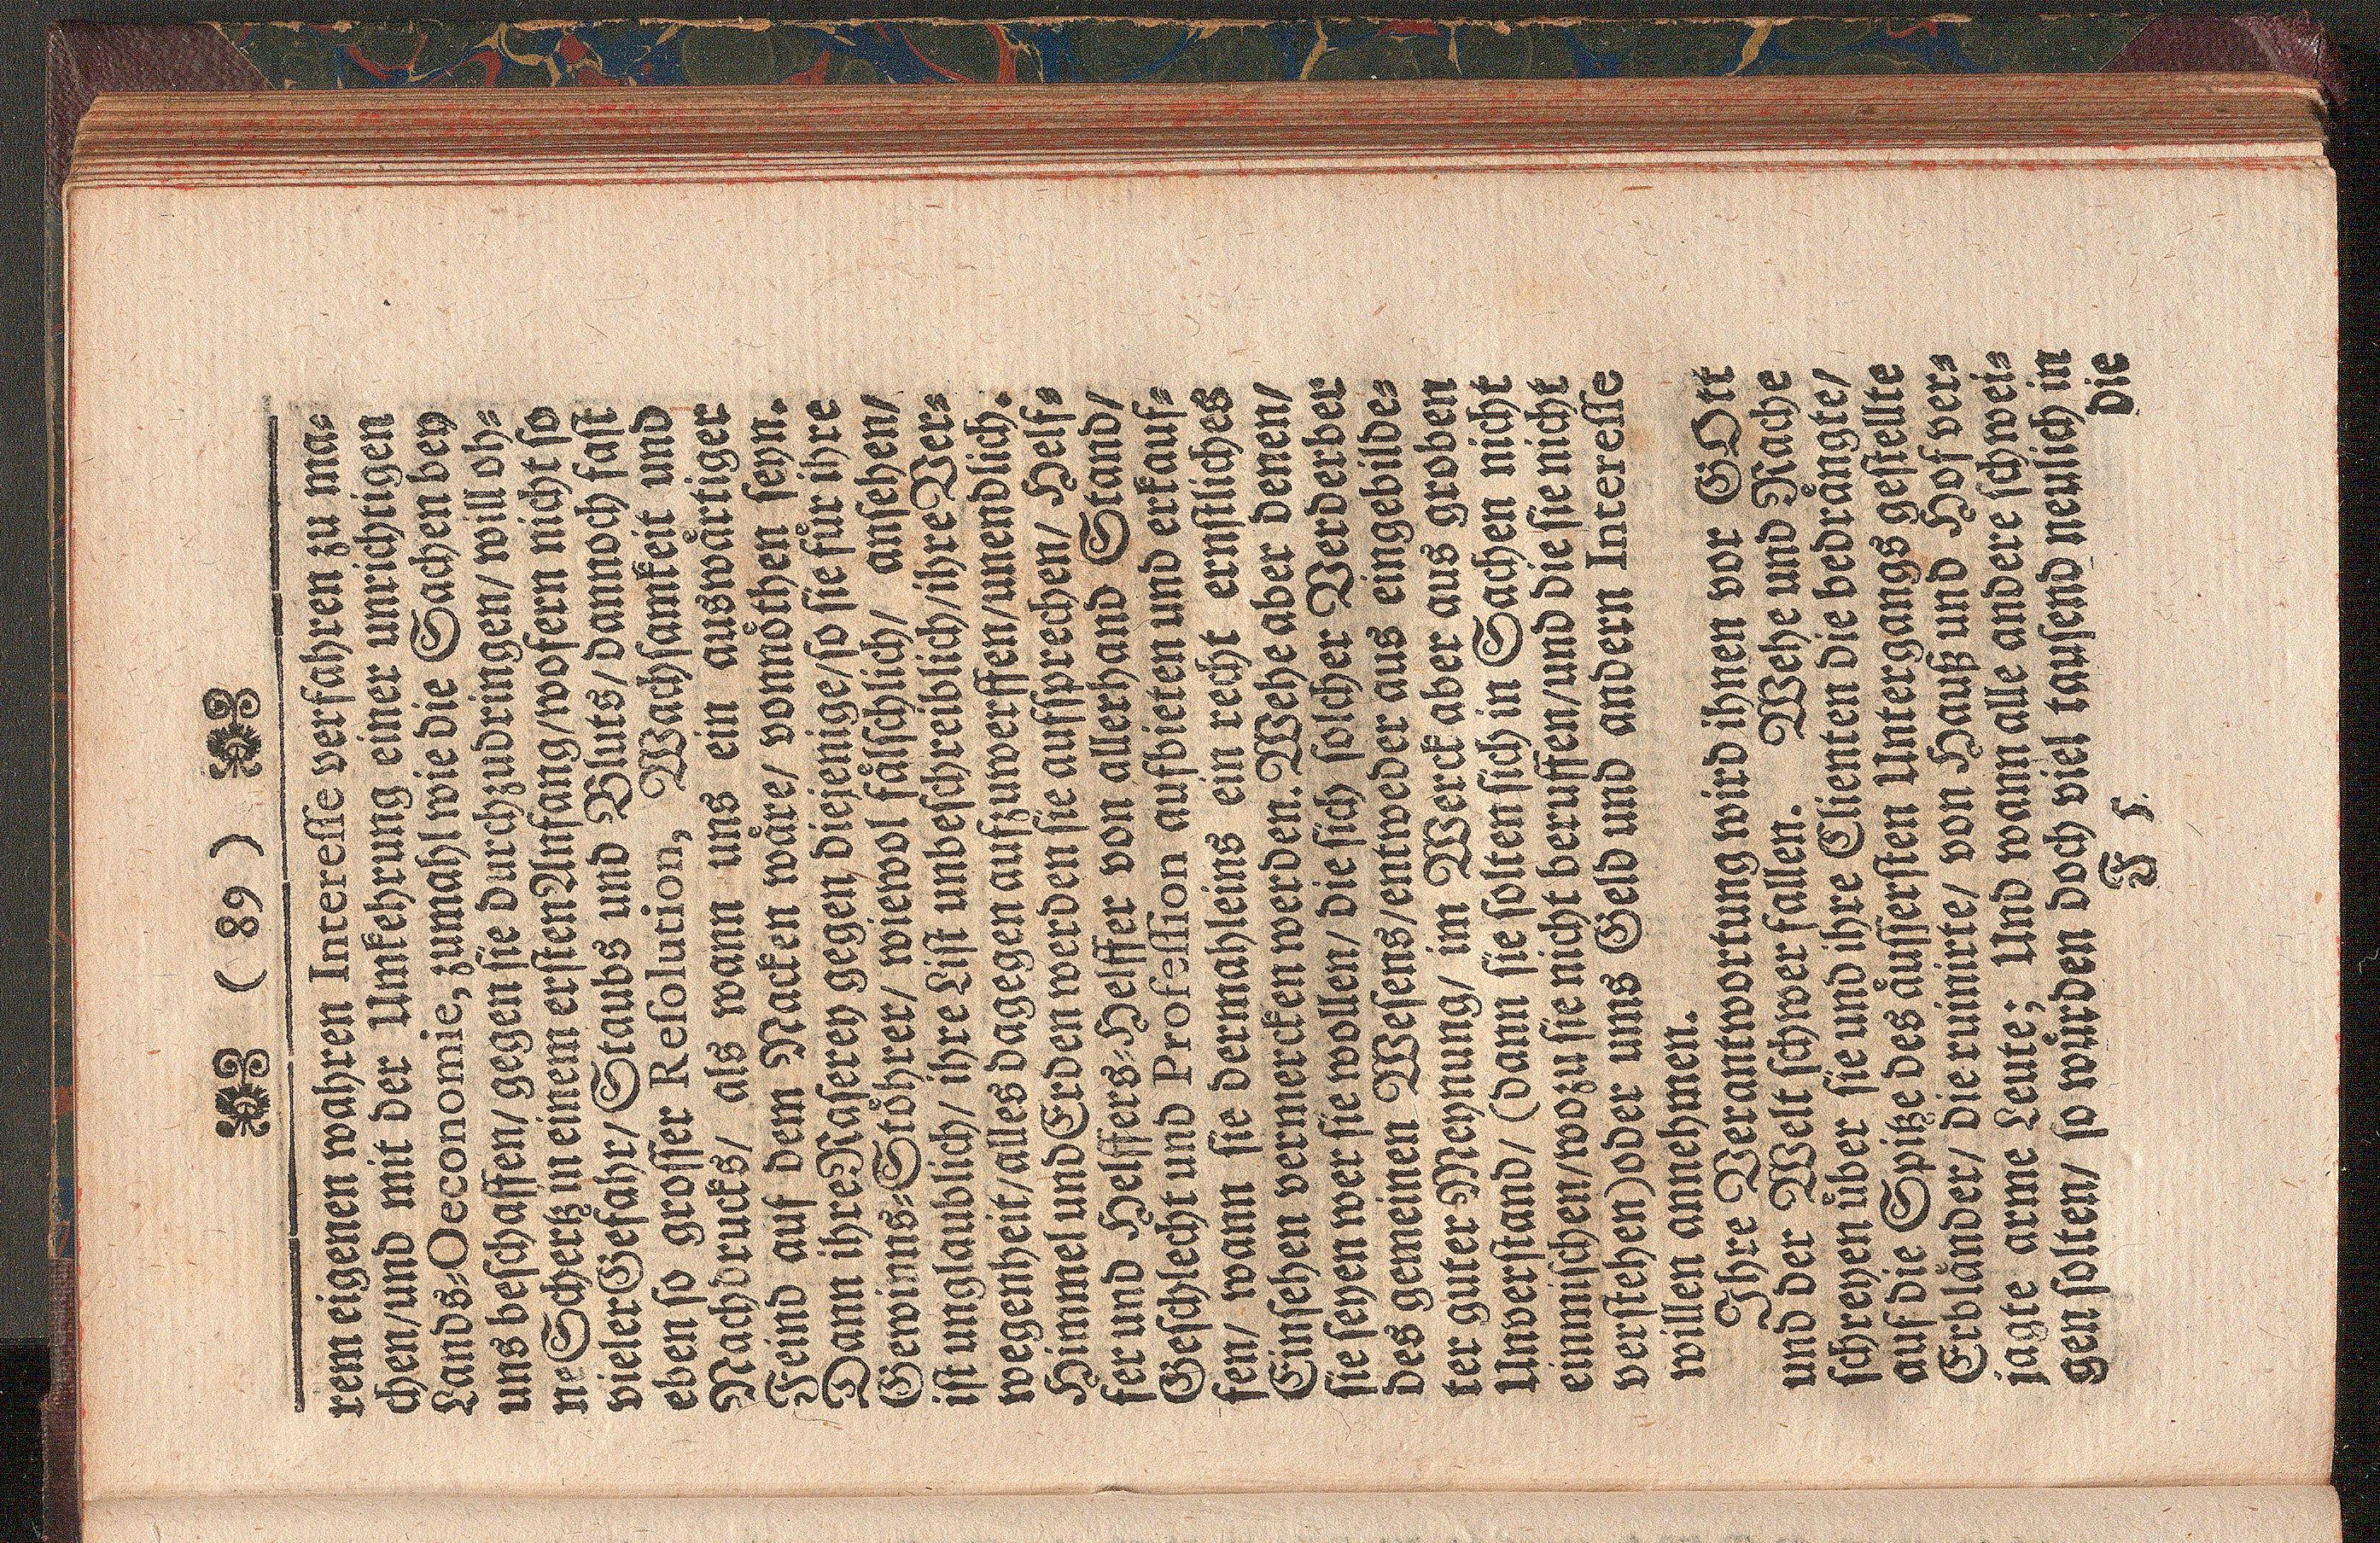 ( 89 )
rem eigenen wahren Interesse verfahren zu ma-
chen/und mit der Umkehrung einer unrichtigen
Lands-Oeconomie, zumahl wie die Sachen bey
uns beschaffen/ gegen sie durchzudringen/ will oh-
ne Schertz in einem ersten Anfang/wofern nicht so
vieler Gefahr/ Staubs und Bluts/ dannoch fast
eben so grosser Resolution, Wachsamkeit und
Nachdrucks/ als wann uns ein auswärtiger
Feind auf dem Nacken wäre/ vonnöthen seyn.
Dann ihre Raserey gegen diejenige/so sie für ihre
Gewinns-Stöhrer/ wiewol fälschlich/ ansehen/
ist unglaublich/ ihre List unbeschreiblich/ihre Ver-
wegenheit/alles dagegen aufzuwerffen/unendlich.
Himmel und Erden werden sie aufsprechen/ Helf-
fer und Helffers-Helffer von allerhand Stand/
Geschlecht und Profession aufbieten und erkauf-
fen/ wann sie dermahleins ein recht ernstliches
Einsehen vermercken werden. Wehe aber denen/
sie seyen wer sie wollen/ die sich solcher Verderber
des gemeinen Wesens/entweder aus eingebilde-
ter guter Meynung/ im Werck aber aus groben
Unverstand/ (dann sie solten sich in Sachen nicht
einmischen/wozu sie nicht beruffen/und die sie nicht
verstehen)oder ums Geld und andern Interesse
willen annehmen.
Ihre Verantwortung wird ihnen vor GOtt
und der Welt schwer fallen. Wehe und Rache
schreyen über sie und ihre Clienten die bedrängte/
auf die Spitze des äussersten Untergangs gestellte
Erbländer/ die ruinirte/ von Hauß und Hof ver-
jagte arme Leute; Und wann alle andere schwei-
gen solten/ so würden doch viel tausend neulich in
F 5 die